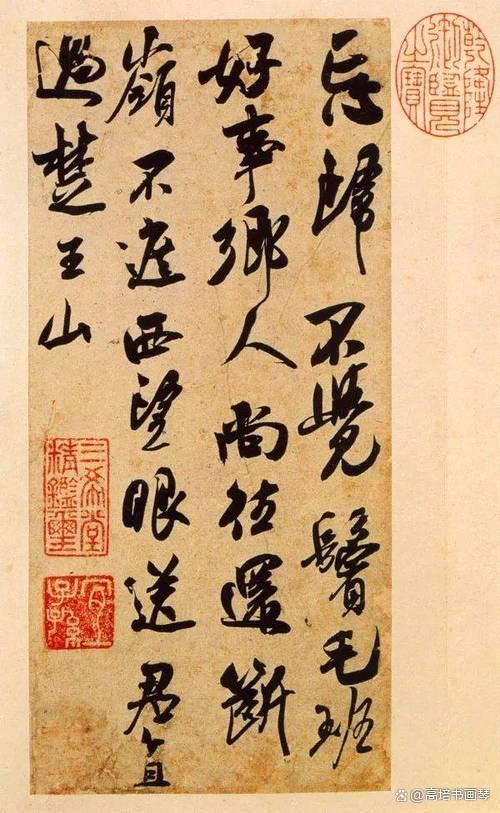 乾隆御覽之寶
忘歸不覺鬢毛班
好事鄉人尚往還斷
嶺不遮西望眼送君直
過楚王山
三希堂精鑑璽
宜子孫
@高培书画琴